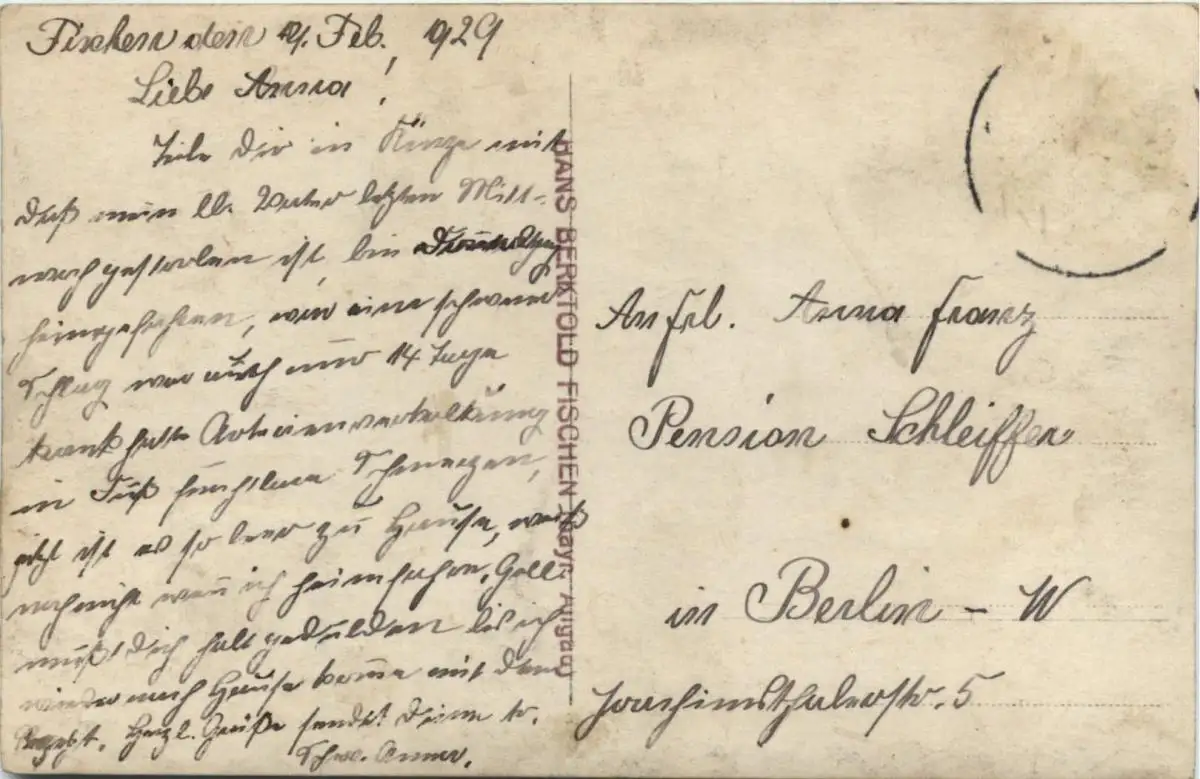 Fischen den 21. Feb. 1929
Liebe Anna!
Teile Dir in Kürze mit
daß mein lb. Vater letzten Mitt-
woch gestorben ist, bin
heimgefahren, war ein schwerer
Schlag war auch nur 14 Tage
krank hatte Arterienverkalkung
in Fuß furchtbare Schmerzen,
jetzt ist es so leer zu Hause, weiß
noch nicht wan ich heimfahre. Gell
mußt Dich halt gedulden bis ich
wieder nach Hause kome mit dem
Herzl. Grüße sendet Deine tr.
Schw. Anna.
HANS BERKTOLD FISCHEN (bayr. Allgäu)
An Frl. Anna Franz
Pension Schleiffer
in Berlin - W
Joachimsthalerstr. 5